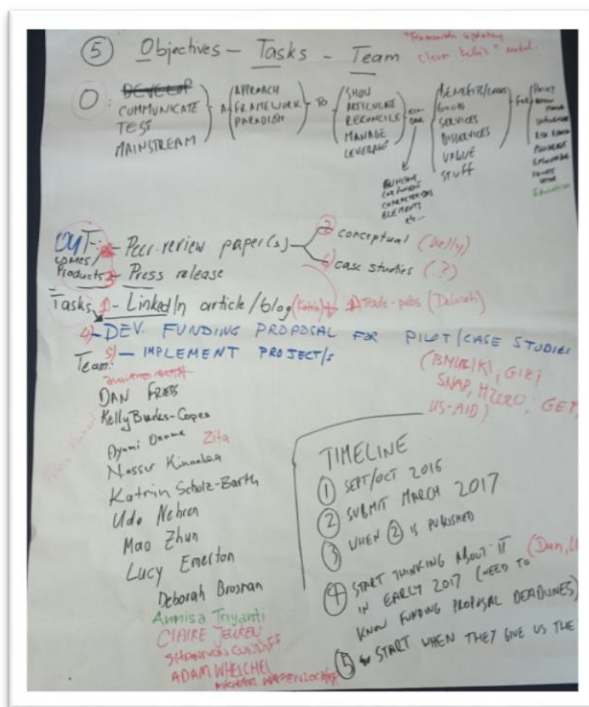 5 Objectives - Tasks - Team
O: DEVELOP
COMMUNICATE
TEST
MAINSTREAM
A
APPROACH
FRAMEWORK
PARADIGM
TO
SHOW
ARTICULATE
RECONCILE
MANAGE
LEVERAGE
BENEFITS/
GOODS
SERVICES
DISSERVICES
VALUE
STUFF
FOR
ELEMENTS
etc...
Education
OUT-
comes/
Products
- Peer-review paper(s)
conceptual (Kelly)
case studies (?)
- Press release
Tasks 1 - LinkedIn article/blog (Katrin) Trade-pubs (Deborah)
4) - DEV. FUNDING PROPOSAL FOR PILOT/CASE STUDIES
5) - IMPLEMENT PROJECT/S
SNAP, H2020, GEF,
US-AID)
Team:
DAN FRESS
Kelly Burks-Copes
Zita
Katrin Scholz-Barth
Udo Nehren
Mao Zhun
Lucy Emerton
Deborah Brosnan
Annisa Triyanti
CLAIRE
ADAM WHELCHEL
TIMELINE
1 SEPT/OCT 2016
2 SUBMIT MARCH 2017
3 WHEN 2 IS PUBLISHED
4 START THINKING ABOUT IT (Dan,
IN EARLY 2017 (NEED TO
KNOW FUNDING PROPOSAL DEADLINES)
5 START WHEN THEY GIVE US THE